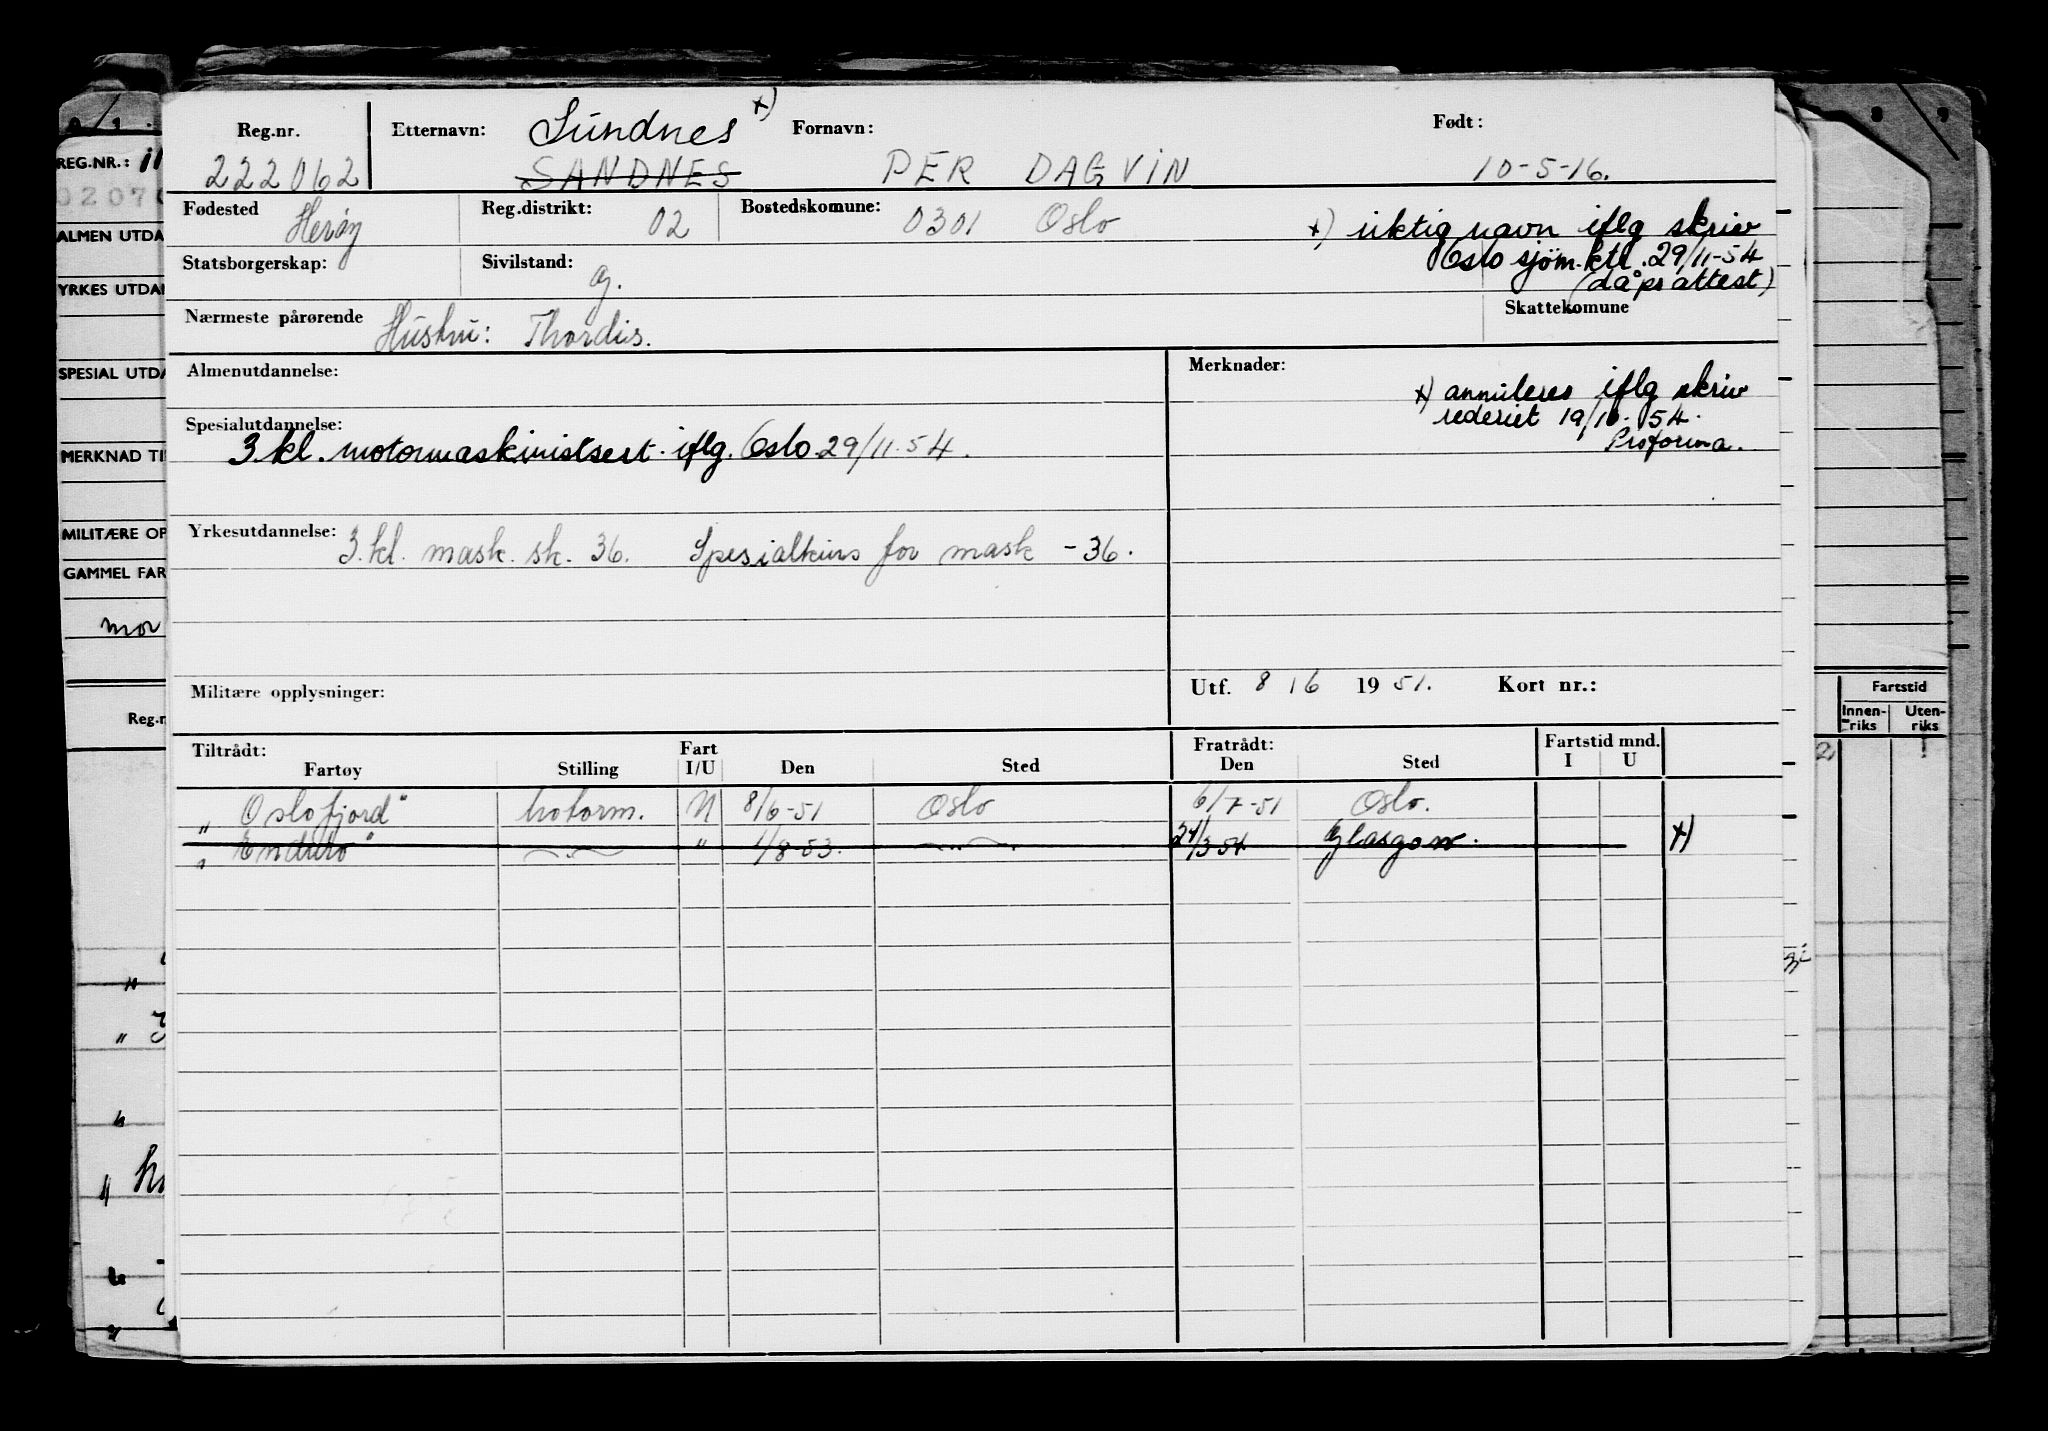 Reg.nr. Etternavn: Sundnes x) Fornavn: Født:
222062 SANDNES PER DAGVIN 10-5-16.
Fødested Herøy Reg.distrikt: 02 Bostedskomune: 0301 Oslo x) riktig navn iflg skriv
Oslo sjöm.ktr. 29/11-54
(dåpsattest)
Statsborgerskap: Sivilstand: g.
Nærmeste pårørende Hustru: Thordis. Skattekomune
Almenutdannelse: Merknader:
x) annuleres iflg skriv
rederiet 19/10-54.
Proforma.
Spesialutdannelse:
3 kl. motormaskinistsert. iflg. Oslo 29/11.54.
Yrkesutdannelse: 3.kl. mask. sk. 36. Spesialkurs for mask -36.
Militære opplysninger: Utf. 8/6 1951. Kort nr.:
Tiltrådt: Fart Fratrådt: Fartstid mnd.
Fartøy Stilling I/U Den Sted Den Sted I U
"Oslofjord" motorm. U 8/6-51 Oslo 6/7-51 Oslo.
"Enduro" " 1/8-53. 24/3 54 Glasgow. x)
REG.NR.:
ALMEN UTDA
YRKES UTDAN
SPESIAL UTDA
MERKNAD TI
MILITÆRE OP
GAMMEL FAR
mor
Reg.n
Fartstid
Innen-riks Uten-riks